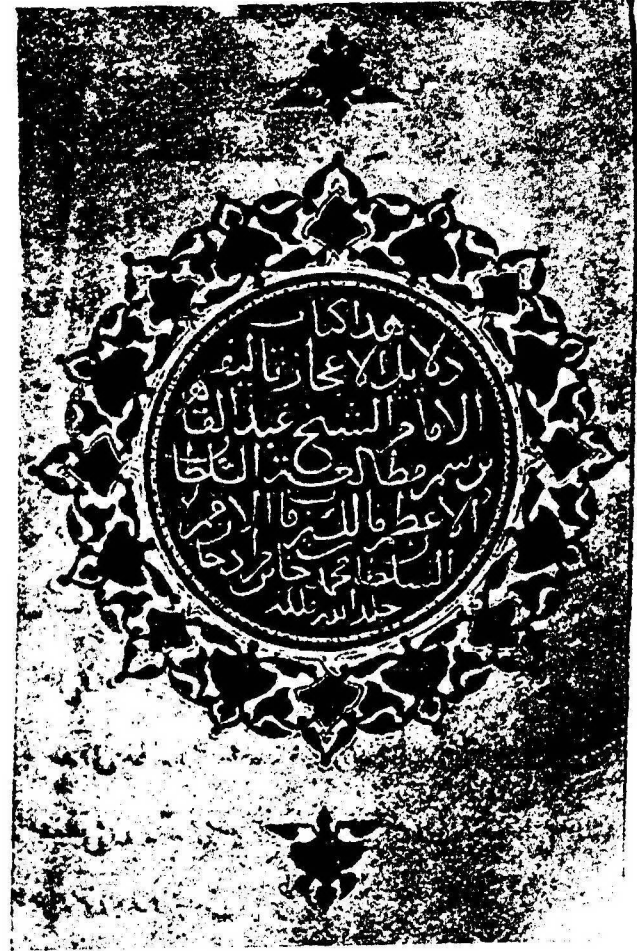 هذا كتاب
دلايل الاعجاز تاليف
الامام الشيخ عبد القاهر
برسم مطالعة السلطان
الاعظم مالك رقاب الامم
السلطان محمد خان بن مراد خان
خلد الله ملكه